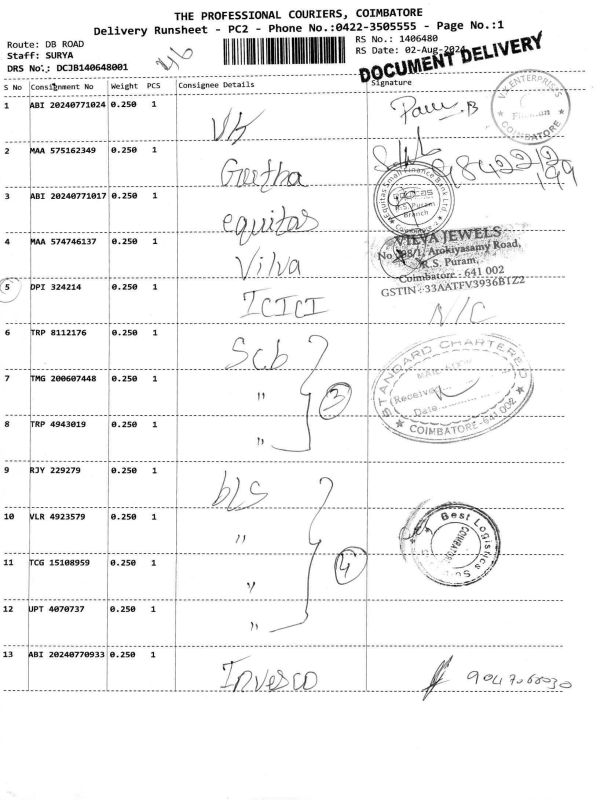 THE PROFESSIONAL COURIERS, COIMBATORE
Delivery Runsheet - PC2 - Phone No.:0422-3505555 - Page No.:1
Route: DB ROAD
RS No.: 1406480
Staff: SURYA
RS Date: 02-Aug-2024
DRS No.: DCJB140648001
DOCUMENT DELIVERY
S No Consignment No Weight PCS Consignee Details Signature
1 ABI 20240771024 0.250 1 VK
V.K ENTERPRISES
COIMBATORE
2 MAA 575162349 0.250 1 Geetha
3 ABI 20240771017 0.250 1 equitas
Equitas Small Finance Bank Ltd
R.S. Puram
Branch
4 MAA 574746137 0.250 1 Vilva
VILVA JEWELS
No. 398/1, Arokiyasamy Road,
R. S. Puram,
Coimbatore - 641 002
GSTIN : 33AATFV3936B1Z2
5 DPI 324214 0.250 1 ICICI N/C
6 TRP 8112176 0.250 1 Scb
7 TMG 200607448 0.250 1 " 3
8 TRP 4943019 0.250 1 "
STANDARD CHARTERED
Received
Date
COIMBATORE-641 002
9 RJY 229279 0.250 1 bLS
10 VLR 4923579 0.250 1 "
Best Logistics
COIMBATORE
11 TCG 15108959 0.250 1 " 4
12 UPT 4070737 0.250 1 "
13 ABI 20240770933 0.250 1 Invesco